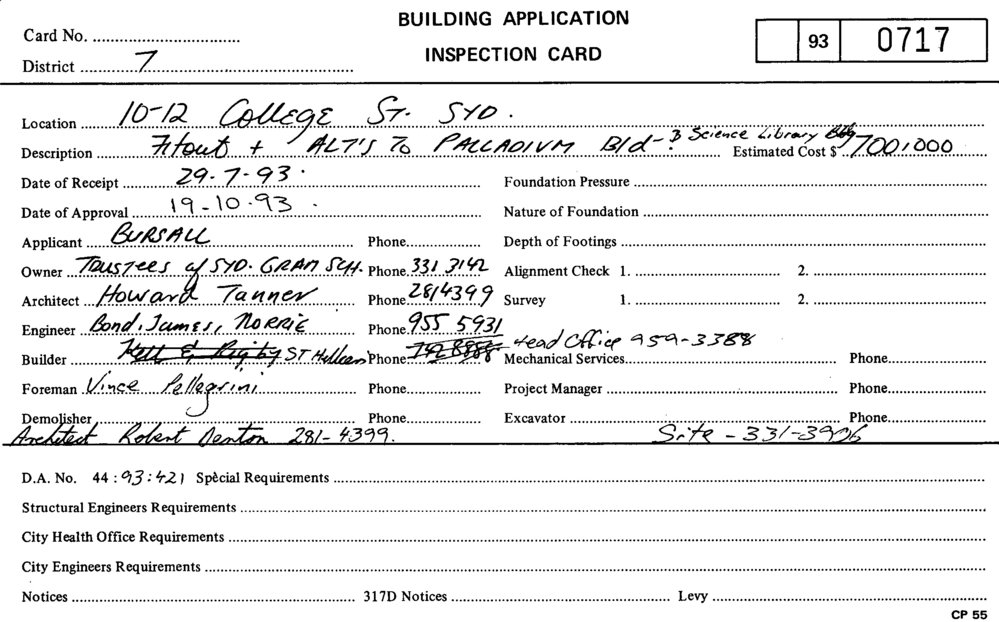 BUILDING APPLICATION
INSPECTION CARD
Card No.
District 7
93 0717
Location 10-12 College St. SYD.
Description Fitout + ALT'S To PALLADIUM Bld- & Science Library Bldg Estimated Cost $ 700,000
Date of Receipt 29.7.93. Foundation Pressure
Date of Approval 19.10.93. Nature of Foundation
Applicant BURSALL Phone Depth of Footings
Owner Trustees of SYD. GRAM SCH. Phone 331 3142 Alignment Check 1. 2.
Architect Howard Tanner Phone 2814399 Survey 1. 2.
Engineer Bond, James, NORRIE Phone 955 5931
Builder Kell & Rigby ST Hilliers Phone Head Office 959-3388 Mechanical Services Phone
Foreman Vince Pellegrini Phone Project Manager Phone
Demolisher Phone Excavator Phone
Architect Robert Denton 281-4399. Site - 331-3906
D.A. No. 44:93:421 Special Requirements
Structural Engineers Requirements
City Health Office Requirements
City Engineers Requirements
Notices 317D Notices Levy
CP 55